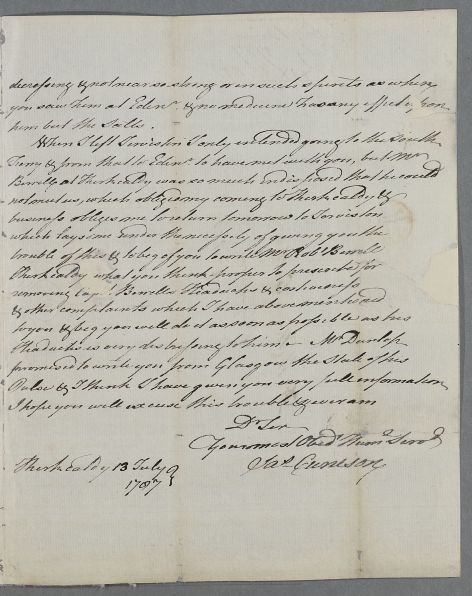 decreasing & not near so strong or in such spirits as when
you saw him at Edinr. & no medicine has any effect upon
him but the Salts.
When I left Torviston I only intended going to the South
Ferry & from that to Edinr. to have met with you, but Mr
Birrell at Thirkcaldy was so much Endisposed that he could
not meet us, which obliges my coming to Thirkcaldy &
business obliges me to return tomorrow to Torviston
which lays me under the necessity of giving you the
trouble of this & to beg of you to write Mr Robt Birrell
Thirkcaldy what you think proper to prescribe for
removing Birrells Headachs & costiveness
& other complaints which I have above mentioned
to you & beg you will do it as soon as possible as his
Headachs is very distressing to him - Mr Dunlop
promised to write you from Glasgow the state of his
Pulse & I think I have given you very full information
I hope you will excuse this trouble & ever am
Dr Sir
Your most Obedt. Humle. Servt
Jas. Cuneson
Thirkcaldy 13 July
1787